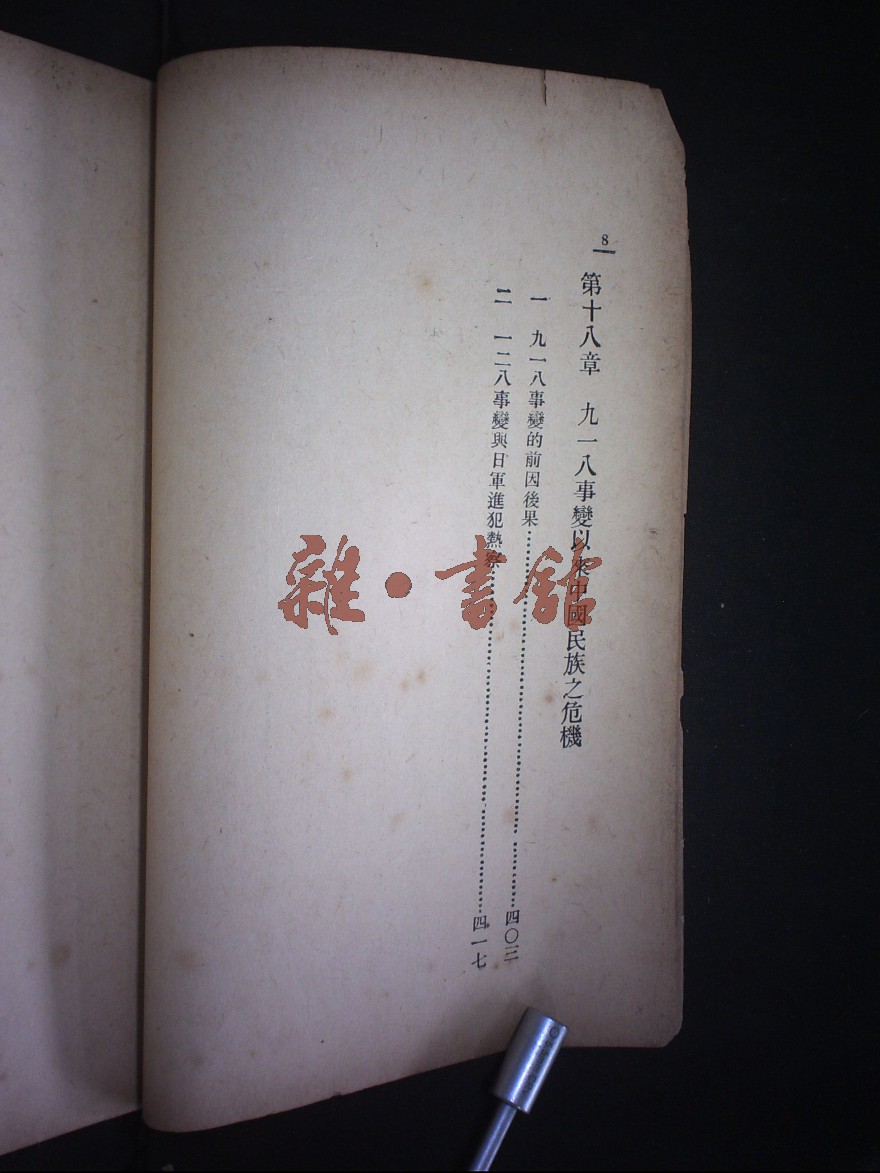 8
第十八章 九一八事變以來中國民族之危機
一 九一八事變的前因後果……四〇三
二 一二八事變與日軍進犯熱察……四一七
雜·書館